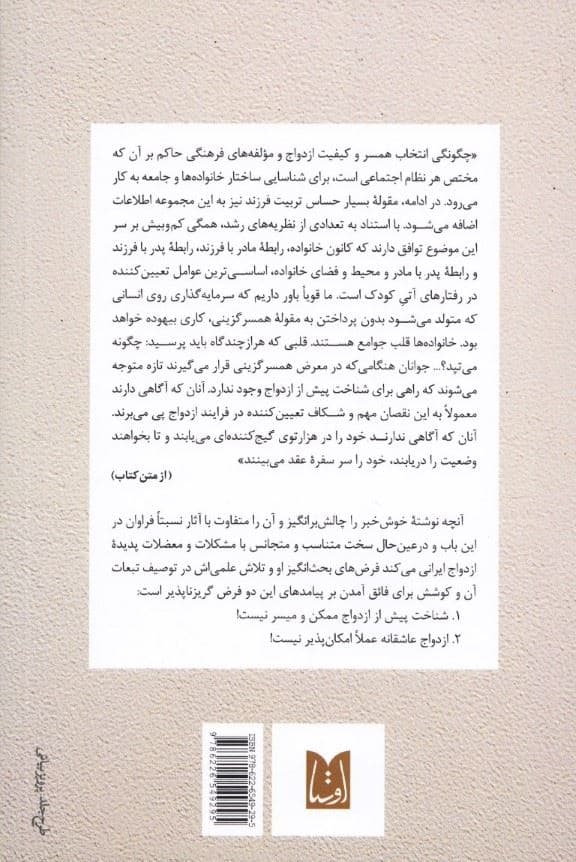 «چگونگی انتخاب همسر و کیفیت ازدواج و مؤلفه‌های فرهنگی حاکم بر آن که
مختص هر نظام اجتماعی است، برای شناسایی ساختار خانواده‌ها و جامعه به کار
می‌رود. در ادامه، مقولهٔ بسیار حساس تربیت فرزند نیز به این مجموعه اطلاعات
اضافه می‌شود. با استناد به تعدادی از نظریه‌های رشد، همگی کم‌وبیش بر سر
این موضوع توافق دارند که کانون خانواده، رابطهٔ مادر با فرزند، رابطهٔ پدر با فرزند
و رابطهٔ پدر با مادر و محیط و فضای خانواده، اساسی‌ترین عوامل تعیین‌کننده
در رفتارهای آتیِ کودک است. ما قویاً باور داریم که سرمایه‌گذاری روی انسانی
که متولد می‌شود بدون پرداختن به مقولهٔ همسرگزینی، کاری بیهوده خواهد
بود. خانواده‌ها قلب جوامع هستند. قلبی که هرازچندگاه باید پرسید: چگونه
می‌تپد؟... جوانان هنگامی‌که در معرض همسرگزینی قرار می‌گیرند تازه متوجه
می‌شوند که راهی برای شناخت پیش از ازدواج وجود ندارد. آنان که آگاهی دارند
معمولاً به این نقصان مهم و شکاف تعیین‌کننده در فرایند ازدواج پی می‌برند.
آنان که آگاهی ندارند خود را در هزارتوی گیج‌کننده‌ای می‌یابند و تا بخواهند
وضعیت را دریابند، خود را سر سفرهٔ عقد می‌بینند»
(از متن کتاب)
آنچه نوشتهٔ خوش‌خبر را چالش‌برانگیز و آن را متفاوت با آثار نسبتاً فراوان در
این باب و درعین‌حال سخت متناسب و متجانس با مشکلات و معضلات پدیدهٔ
ازدواج ایرانی می‌کند فرض‌های بحث‌انگیز او و تلاش علمی‌اش در توصیف تبعات
آن و کوشش برای فائق آمدن بر پیامدهای این دو فرض گریزناپذیر است:
۱. شناخت پیش از ازدواج ممکن و میسر نیست!
۲. ازدواج عاشقانه عملاً امکان‌پذیر نیست!
ISBN 978-622-6549-29-5
9786226549295
اوستا
طرح جلد: پرویز بیانی